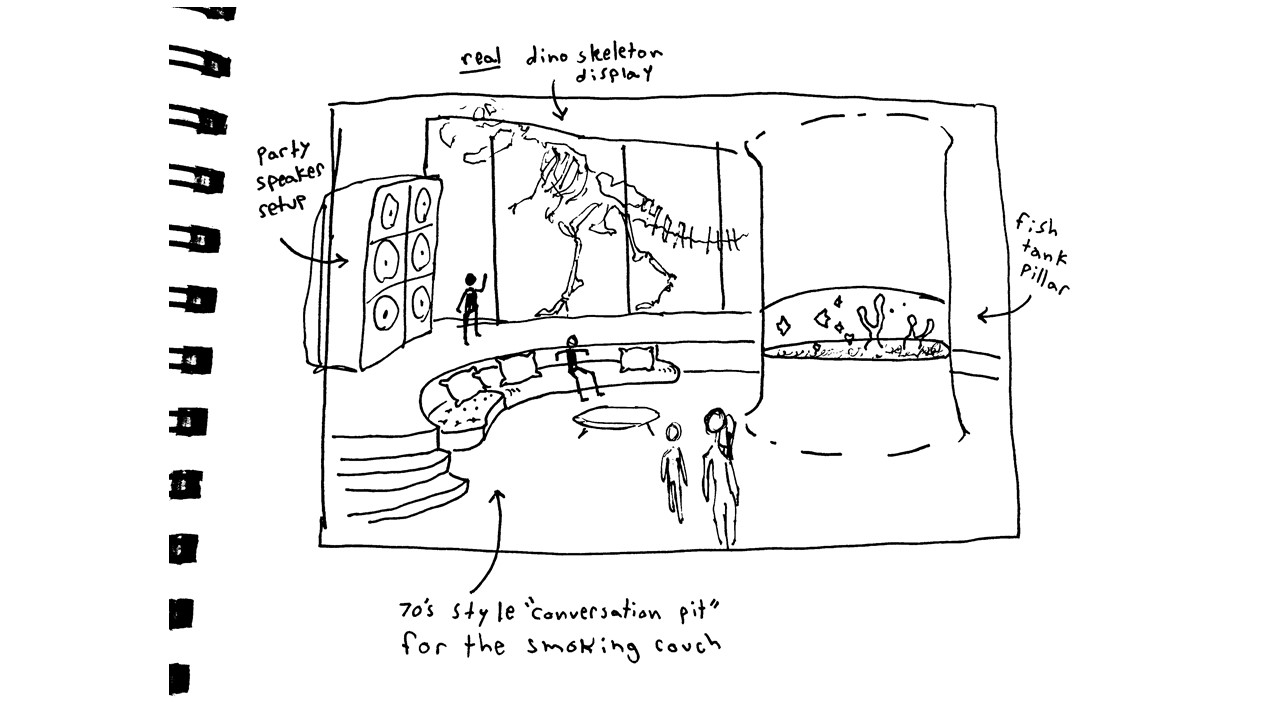 real dino skeleton
display
Party
speaker
setup
fish
tank
pillar
70's style "conversation pit"
for the smoking couch